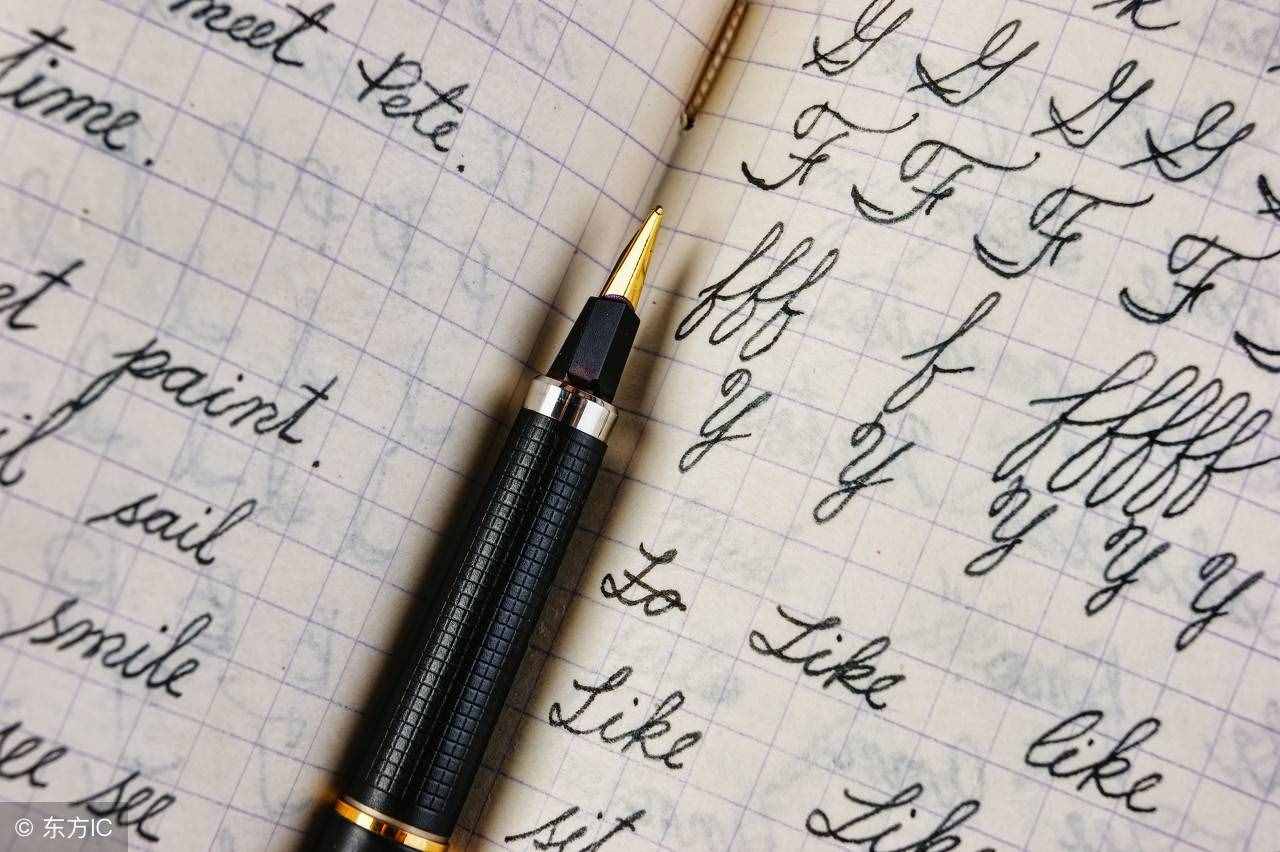 meet Pete.
time.
paint.
sail
smile
see see
G G G G
F F F F
fff f fffff
Y Y Y Y Y
Like like
Like Like
sit
© 东方IC